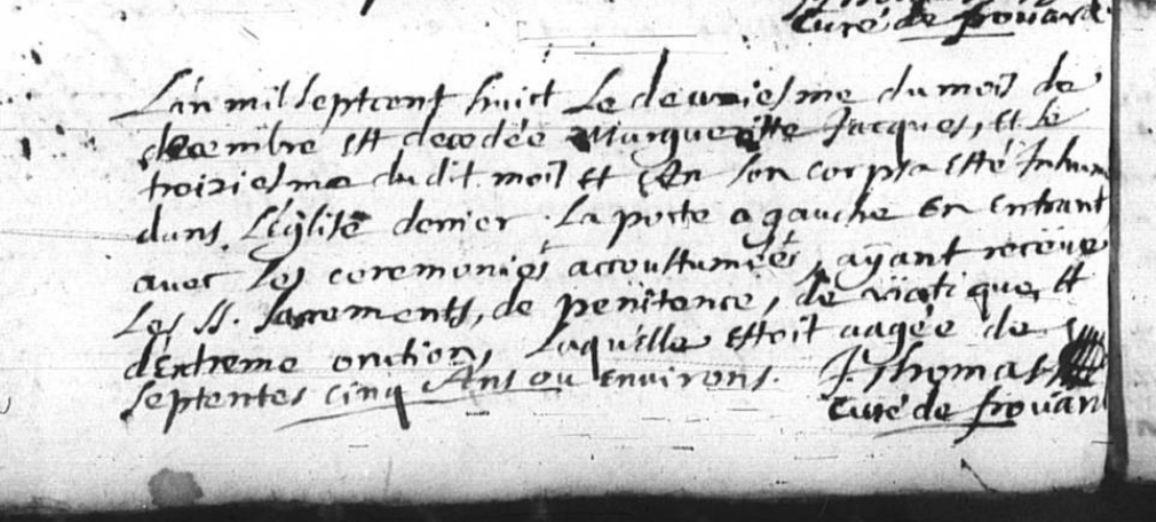 Curé de frouard.
L'an mil septcent huict Le deuxiesme du mois de
decembre est decedée Margueritte Jacques, et le
troiziesme du dit mois et an son corps a esté Inhum
dans L'églisē derrier La porte a gauche En entrant
avec les ceremonies accoustumées, aÿant receue
Les SS. Sacrements, de penitence, de viatique, et
d'extreme onction, Laquelle estoit aagée de
septentes cinq Ans ou environs. J. Thomas
curé de frouard